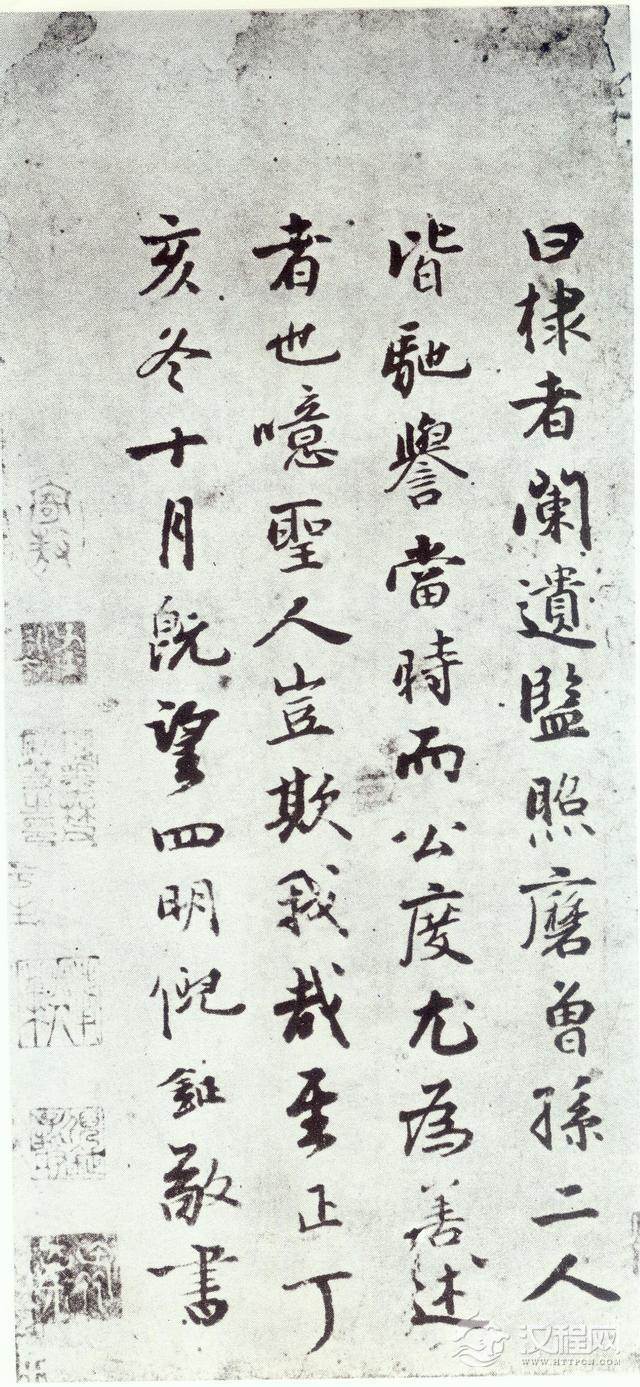 曰棣者闌遺監照磨曾孫二人
皆馳譽當時而公度尤為善述
者也噫聖人豈欺我哉至正丁
亥冬十月既望四明倪鉦敬書
汉程网
WWW.HTTPCN.COM